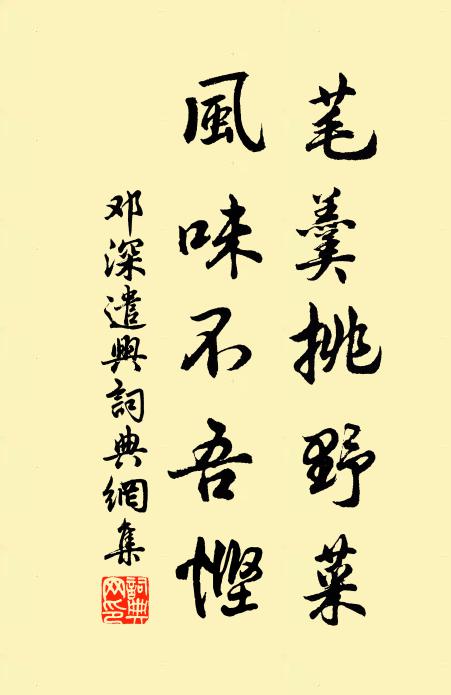 芼羹挑野菜
風味不吾慳
邓深遣興詞典網集
詞典网印